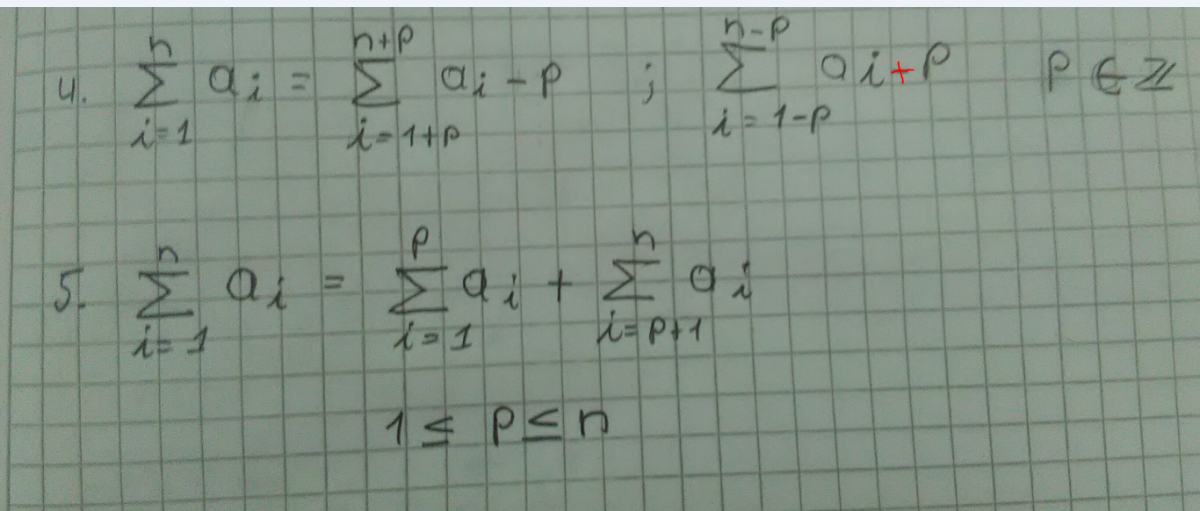 4. \sum_{i=1}^{n} a_i = \sum_{i=1+p}^{n+p} a_i - p ; \sum_{i=1-p}^{n-p} a_i + p p ∈ ℤ
5. \sum_{i=1}^{n} a_i = \sum_{i=1}^{p} a_i + \sum_{i=p+1}^{n} a_i
1 ≤ p ≤ n